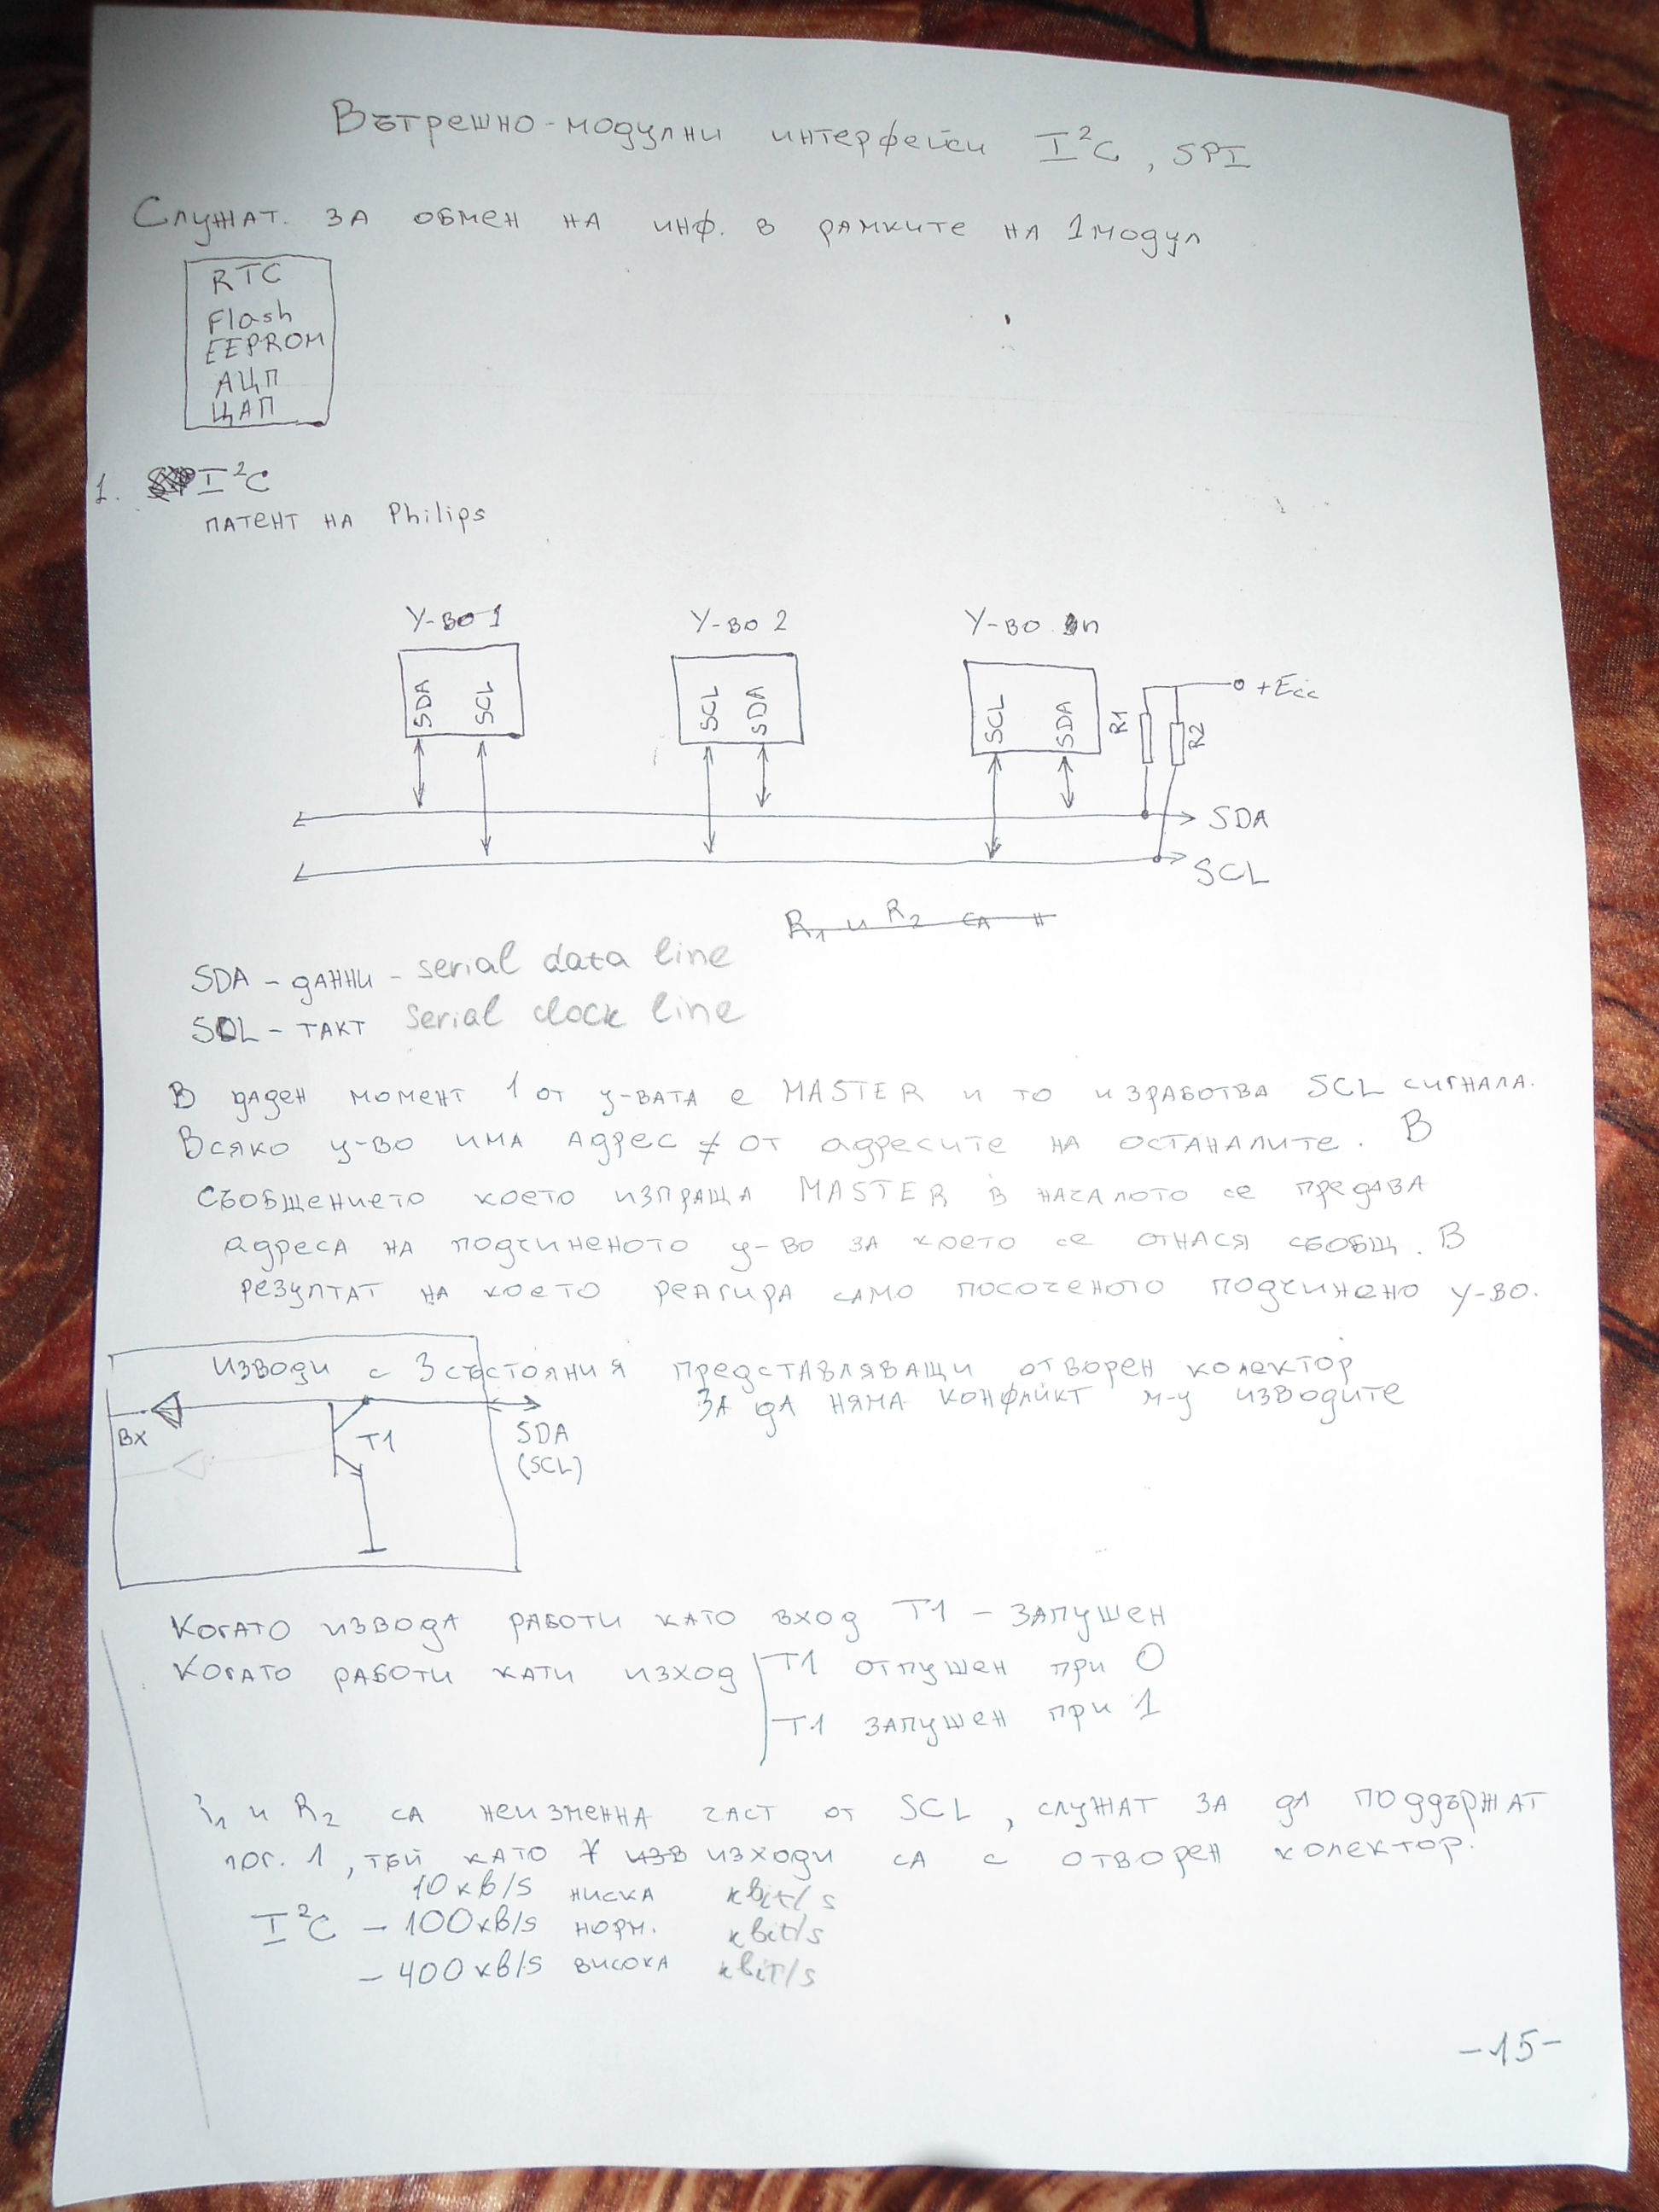 Вътрешно-модулни интерфейси I²C, SPI
Служат. за обмен на инф. в рамките на 1 модул
RTC
Flash
EEPROM
АЦП
ЦАП
1. I²C
патент на Philips
У-во 1 У-во 2 У-во n
SDA SCL SCL SDA SCL SDA R1 R2 +Ecc
SDA
SCL
R₁ и R₂ са н
SDA - данни - serial data line
SCL - такт serial clock line
В даден момент 1 от у-вата е MASTER и то изработва SCL сигнала.
Всяко у-во има адрес ≠ от адресите на останалите. В
съобщението което изпраща MASTER в началото се предава
адреса на подчиненото у-во за което се отнася съобщ. В
резултат на което реагира само посоченото подчинено у-во.
изводи с 3 състояния представляващи отворен колектор
За да няма конфликт м-у изводите
Вх T1 SDA
(SCL)
Когато извода работи като вход T1 - запушен
Когато работи кати изход T1 отпушен при 0
T1 запушен при 1
R₁ и R₂ са неизменна част от SCL, служат за да поддържат
лог. 1, тъй като ∀ изв изходи са с отворен колектор.
10кв/s ниска kbit/s
I²C - 100кв/s норм. kbit/s
- 400кв/s висока kbit/s
-15-